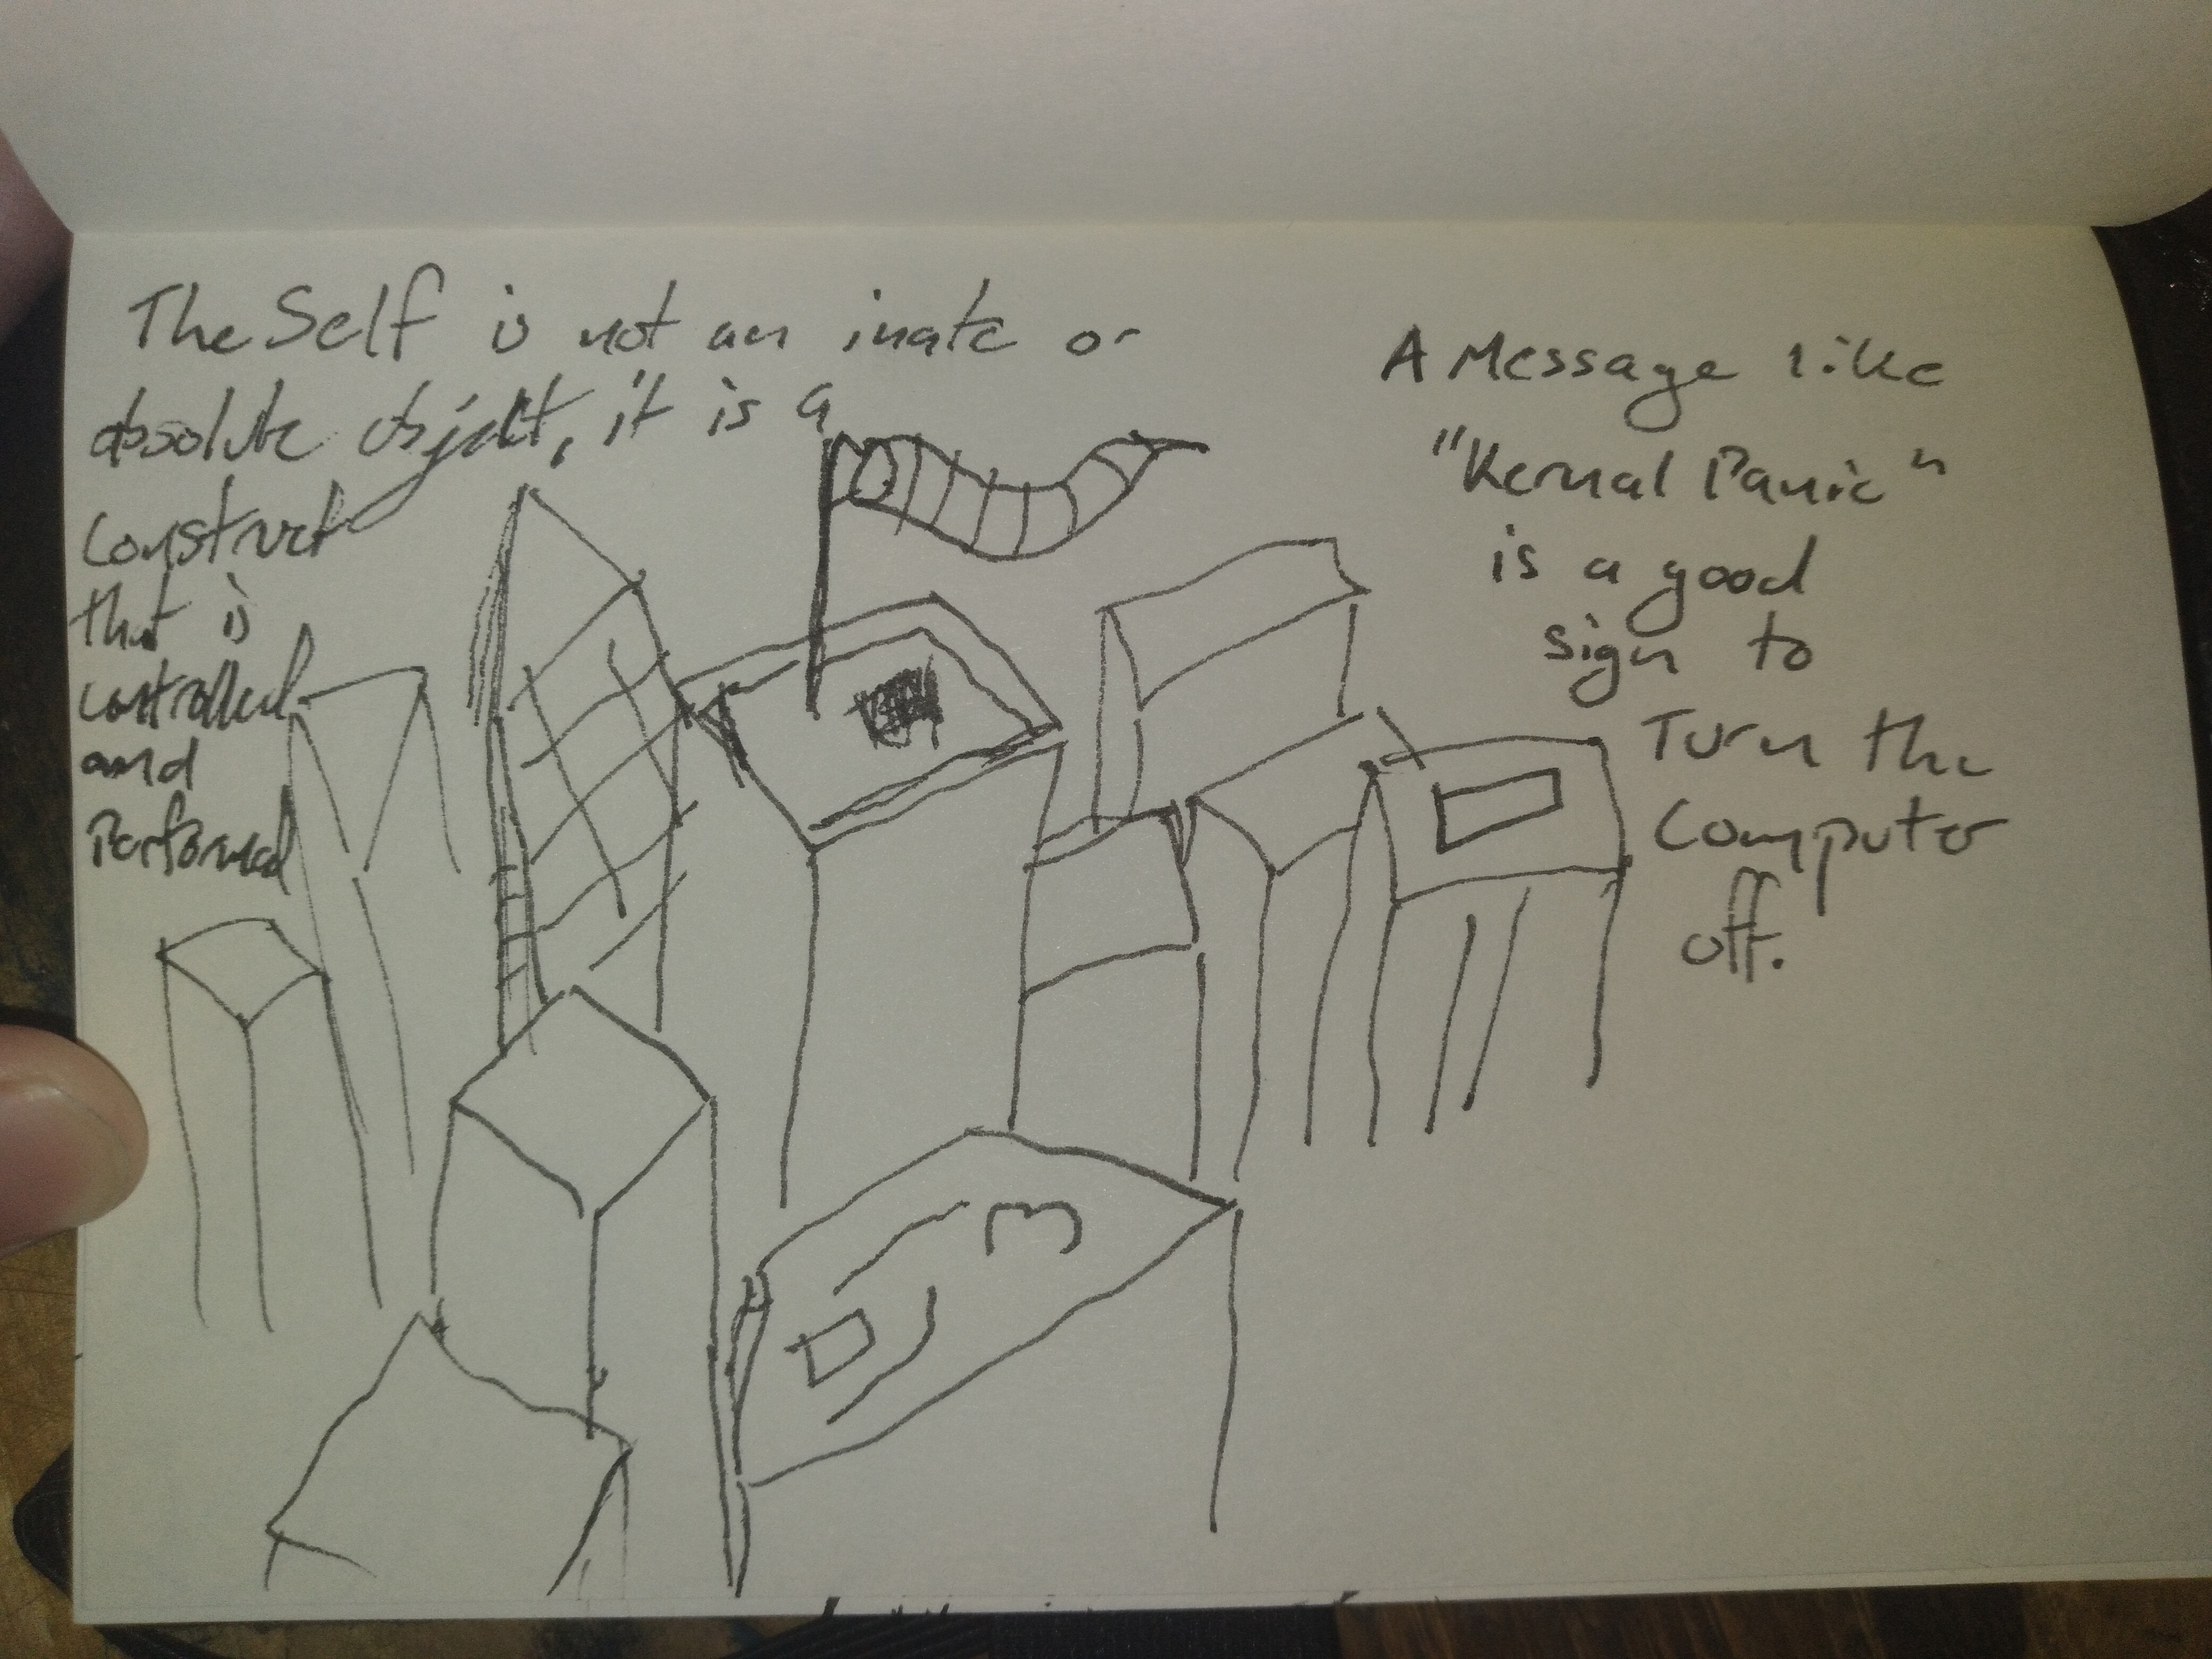 The Self is not an inate or
absolute object, it is a
construct
that is
controlled
and
Performed
A Message like
"Kernal Panic"
is a good
sign to
Turn the
Computer
off.